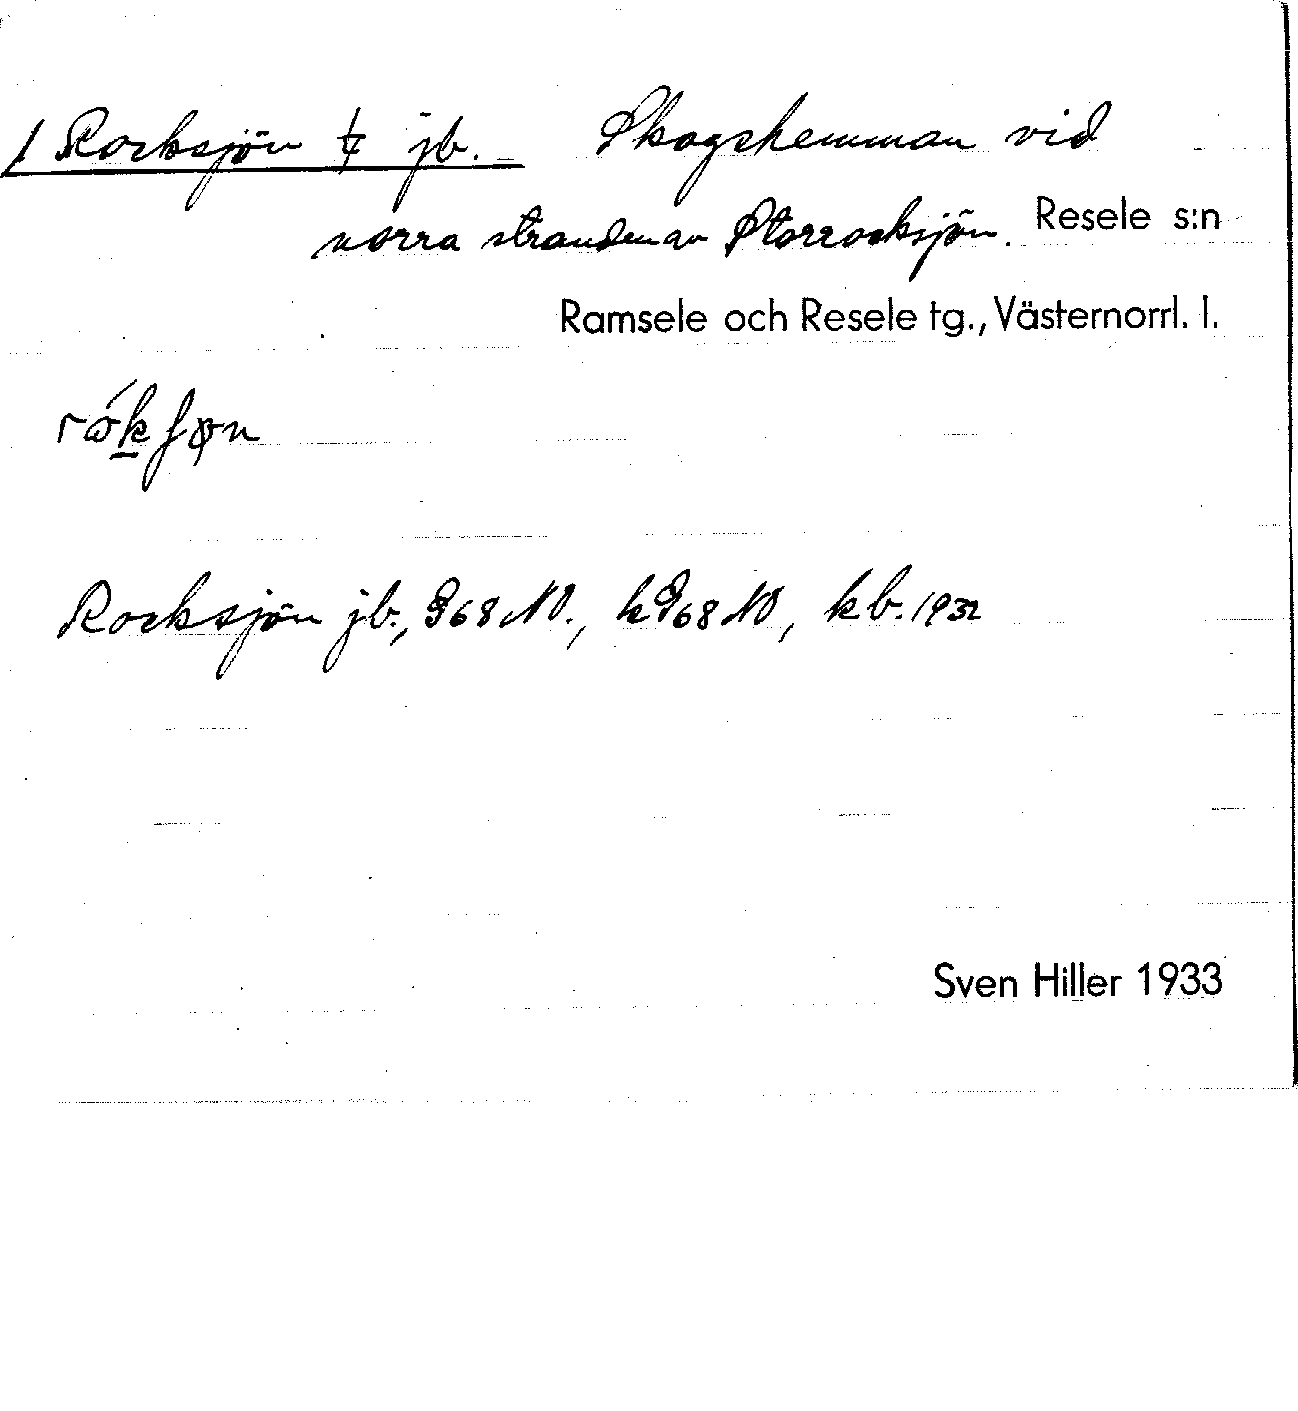 1 Rocksjön ⚥ jb. Skogshemman vid
norra stranden av Storrocksjön. Resele s:n
Ramsele och Resele tg., Västernorrl. l.
Rocksjön jb., G68 NO., kG68 NO, kb. 1932
Sven Hiller 1933